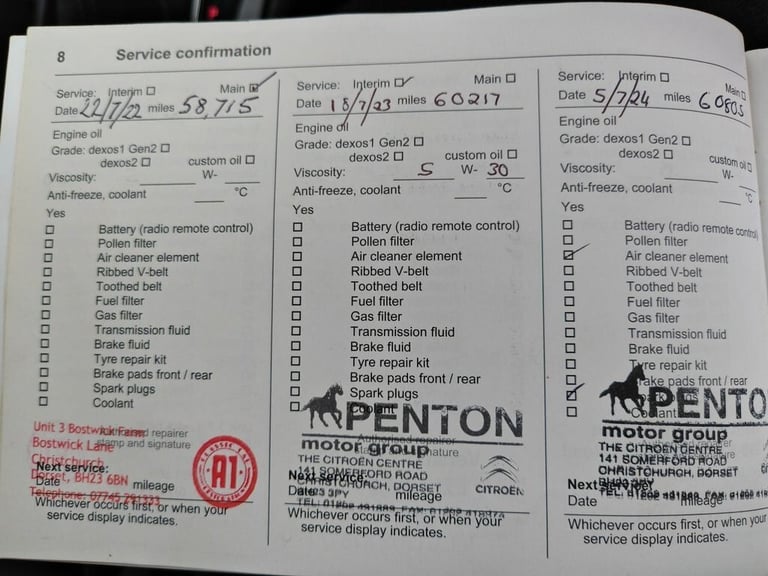 8 Service confirmation
Service: Interim Main
Date 22/7/22 miles 58,715
Engine oil
Grade: dexos1 Gen2
dexos2 custom oil
Viscosity: W-
Anti-freeze, coolant °C
Yes
Battery (radio remote control)
Pollen filter
Air cleaner element
Ribbed V-belt
Toothed belt
Fuel filter
Gas filter
Transmission fluid
Brake fluid
Tyre repair kit
Brake pads front / rear
Spark plugs
Coolant
Unit 3 Bostwick Farm
Bostwick Lane
Christchurch
Dorset, BH23 6BN
Telephone: 07745 291333
repairer
stamp and signature
A1
Next service:
Date mileage
Whichever occurs first, or when your
service display indicates.
Service: Interim Main
Date 18/7/23 miles 60217
Engine oil
Grade: dexos1 Gen2
dexos2 custom oil
Viscosity: 5 W- 30
Anti-freeze, coolant °C
Yes
Battery (radio remote control)
Pollen filter
Air cleaner element
Ribbed V-belt
Toothed belt
Fuel filter
Gas filter
Transmission fluid
Brake fluid
Tyre repair kit
Brake pads front / rear
Spark plugs
Coolant
PENTON
motor group
THE CITROËN CENTRE
141 SOMERFORD ROAD
CHRISTCHURCH, DORSET
BH23 3PY
CITROËN
Next service:
Date mileage
Whichever occurs first, or when your
service display indicates.
Service: Interim Main
Date 5/7/24 miles 60803
Engine oil
Grade: dexos1 Gen2
dexos2 custom oil
Viscosity: W-
Anti-freeze, coolant °C
Yes
Battery (radio remote control)
Pollen filter
Air cleaner element
Ribbed V-belt
Toothed belt
Fuel filter
Gas filter
Transmission fluid
Brake fluid
Tyre repair kit
Brake pads front / rear
Coolant
PENTO
motor group
THE CITROËN CENTRE
141 SOMERFORD ROAD
CHRISTCHURCH, DORSET
Next service:
Date mileage
Whichever occurs first, or when your
service display indicates.